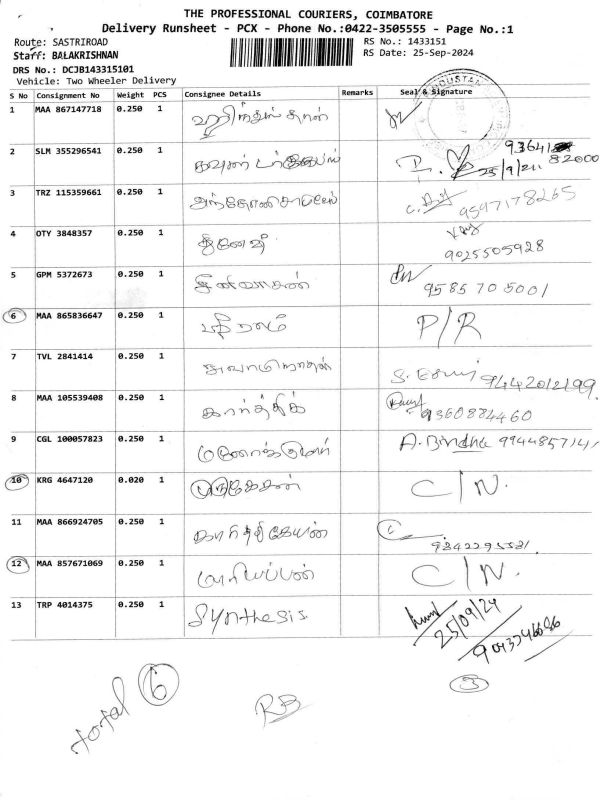 THE PROFESSIONAL COURIERS, COIMBATORE
Delivery Runsheet - PCX - Phone No.:0422-3505555 - Page No.:1
Route: SASTRIROAD RS No.: 1433151
Staff: BALAKRISHNAN RS Date: 25-Sep-2024
DRS No.: DCJB143315101
Vehicle: Two Wheeler Delivery
S No Consignment No Weight PCS Consignee Details Remarks Seal & Signature
1 MAA 867147718 0.250 1
2 SLM 355296541 0.250 1 25/9/24 82000
3 TRZ 115359661 0.250 1 9597178265
4 OTY 3848357 0.250 1 தினேஷ் 9025505928
5 GPM 5372673 0.250 1 சீனிவாசன் 9585705001
6 MAA 865836647 0.250 1 P/R
7 TVL 2841414 0.250 1 சுவாமிநாதன் 9442012199.
8 MAA 105539408 0.250 1 கார்த்திக் 9360884460
9 CGL 100057823 0.250 1 மனோஜ்குமார் A. Bindhu 994485714
10 KRG 4647120 0.020 1 முருகேசன் C/N.
11 MAA 866924705 0.250 1 கார்த்திகேயன்
12 MAA 857671069 0.250 1 மாரியப்பன் C/N.
13 TRP 4014375 0.250 1 Synthesis 25/09/24
total 6 RB 3